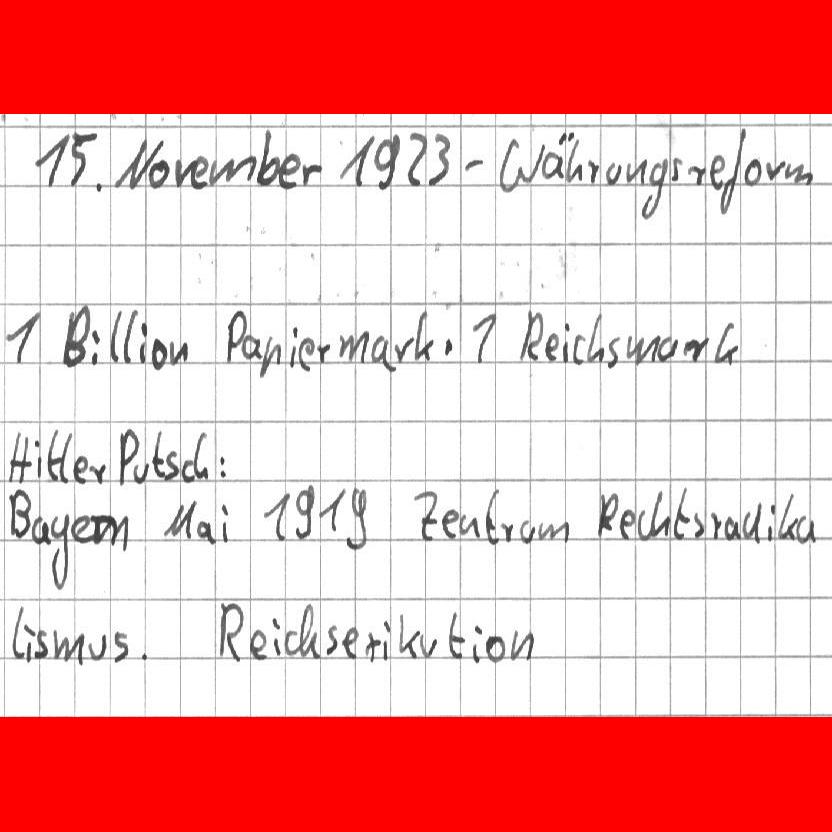 15. November 1923 - Währungsreform
1 Billion Papiermark. 1 Reichsmark
Hitler Putsch:
Bayern Mai 1919 Zentrum Rechtsradika
lismus. Reichsexikution